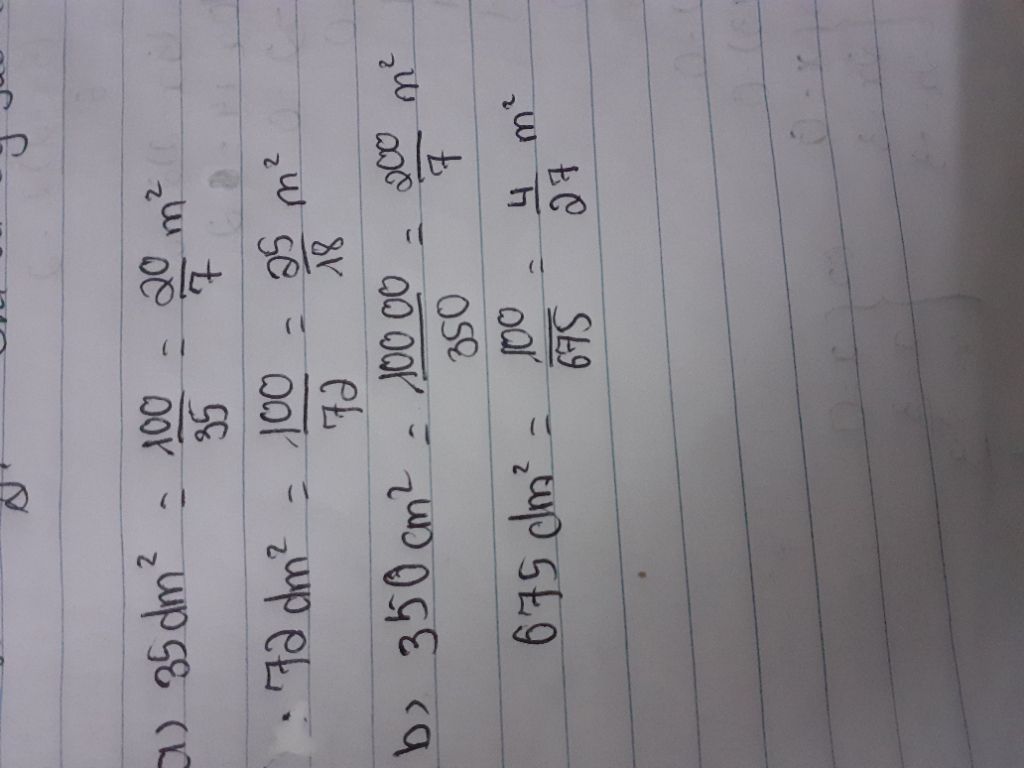 a) 35dm² = 100/35 = 20/7 m²
. 72 dm² = 100/72 = 25/18 m²
b) 350 cm² = 10000/350 = 200/7 m²
675 dm² = 100/675 = 4/27 m²